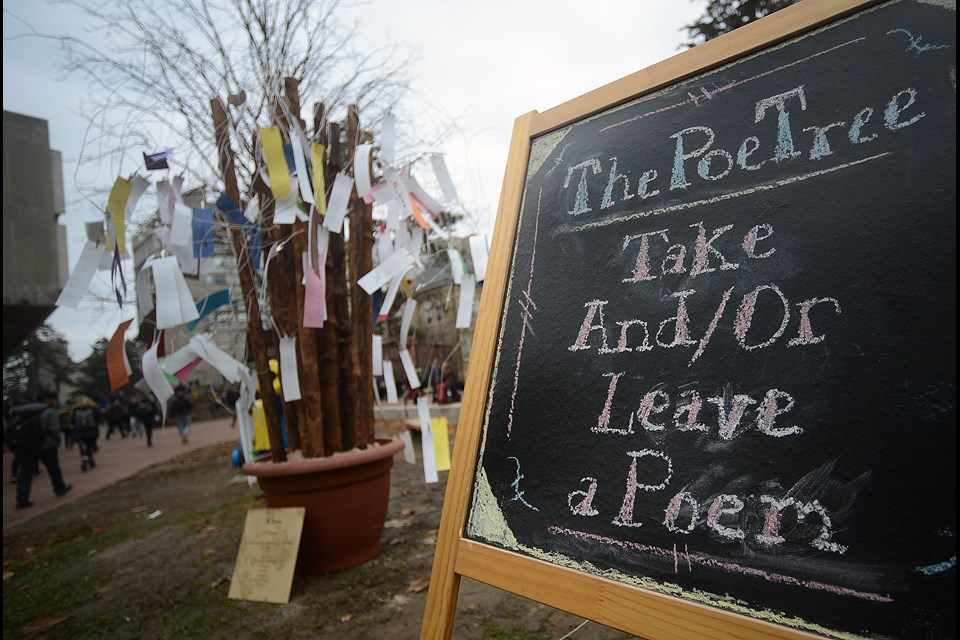 The PoeTree
Take
And/Or
Leave
a Poem